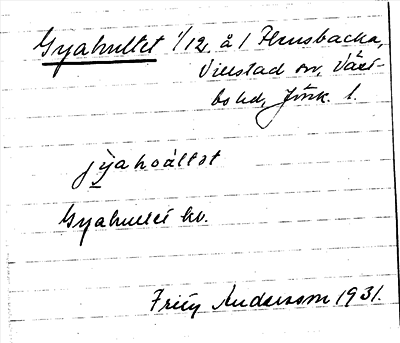 Gyahultet 1/12 å 1 Hensbacka,
Virestad sn, Väst-
bo hd, Jönk. l.
jyahoåltot
Gyahultet hv.
Andersson 1931.